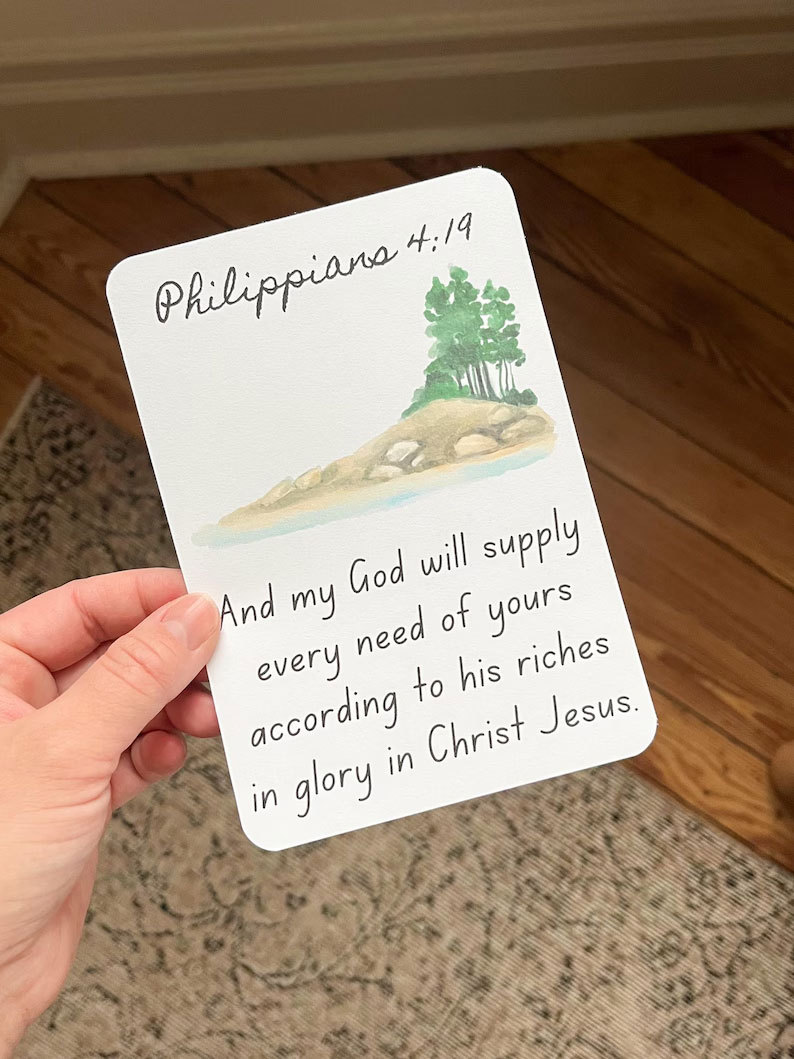 Philippians 4:19
And my God will supply
every need of yours
according to his riches
in glory in Christ Jesus.